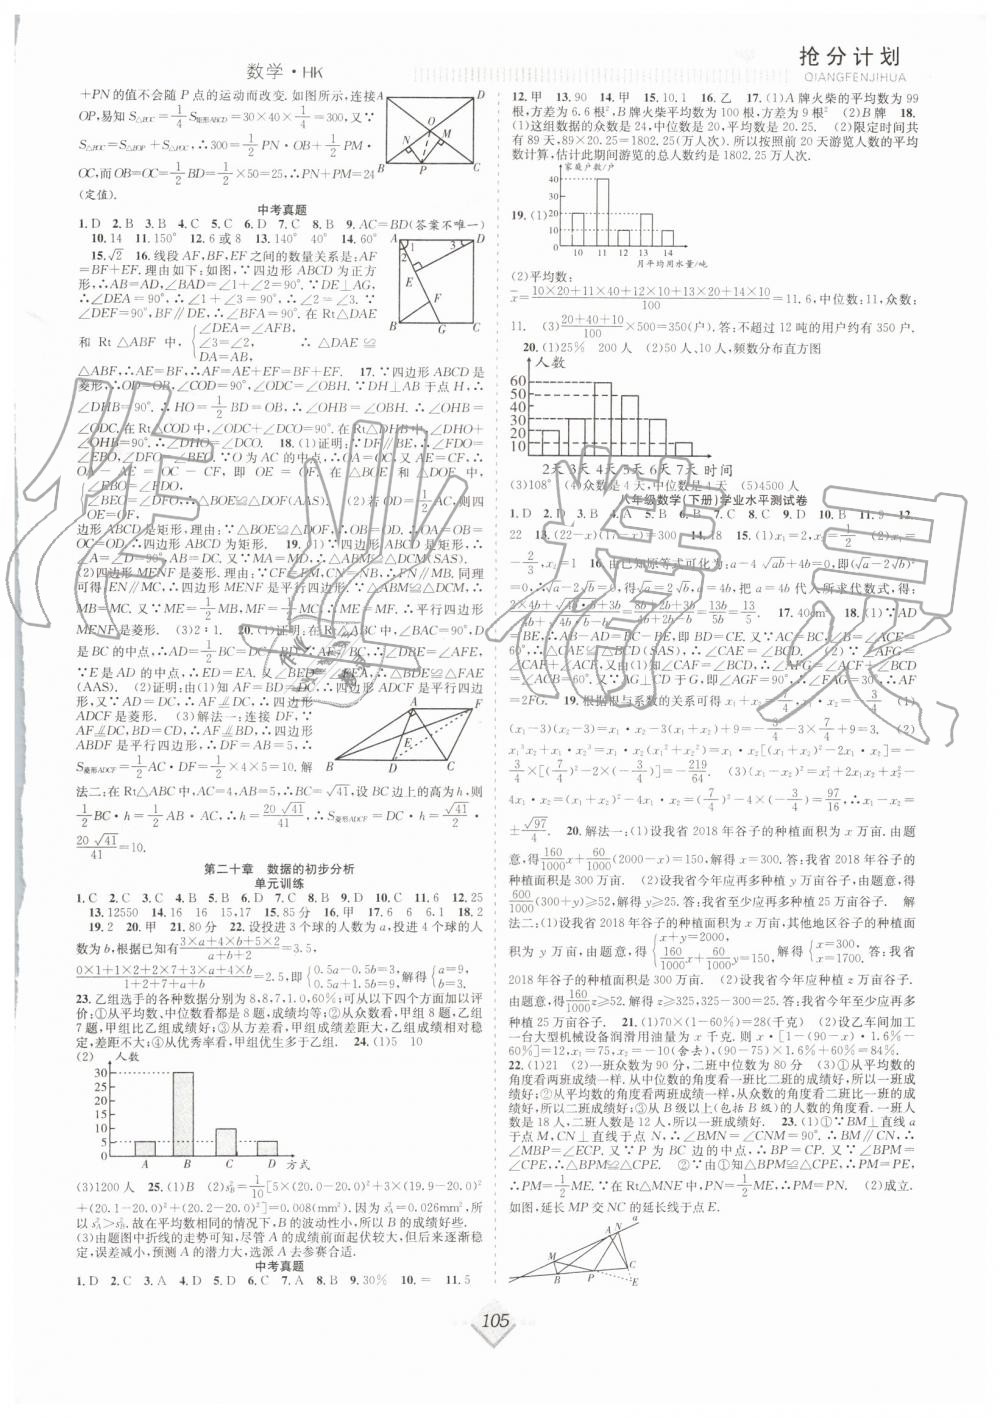 数学·HK
抢分计划
QIANGFENJIHUA
+PN的值不会随 P 点的运动而改变. 如图所示,连接
OP,易知 S△BOC=1/4 S矩形ABCD=30×40×1/4=300,又∵
S△BOC=S△BOP+S△POC,∴300=1/2 PN·OB+1/2 PM·
OC,而OB=OC=1/2 BD=1/2×50=25,∴PN+PM=24
(定值).
中考真题
1. D 2. B 3. B 4. C 5. C 6. D 7. C 8. B 9. AC=BD(答案不唯一)
10. 14 11. 150° 12. 6或8 13. 140° 40° 14. 60°
15. √2 16. 线段 AF,BF,EF 之间的数量关系是:AF
=BF+EF. 理由如下:如图,∵四边形 ABCD 为正方
形,∴AB=AD,∠BAD=∠1+∠2=90°. ∵DE⊥AG,
∴∠DEA=90°. ∴∠1+∠3=90°. ∴∠2=∠3. ∵
∠DEF=90°,BF∥DE,∴∠BFA=90°. 在Rt△DAE
和 Rt△ABF 中, {∠DEA=∠AFB, ∠3=∠2, DA=AB, ∴△DAE≌
△ABF,∴AE=BF,∴AF=AE+EF=BF+EF. 17. ∵四边形ABCD是
菱形,∴OD=OB,∠COD=90°,∠ODC=∠OBH. ∵DH⊥AB于点H,∴
∠DHB=90°. ∴HO=1/2 BD=OB,∴∠OHB=∠OBH. ∴∠OHB=
∠ODC. 在Rt△COD中,∠ODC+∠DCO=90°. 在Rt△DHB中,∠DHO+
∠OHB=90°,∴∠DHO=∠DCO. 18. (1)证明:∵DF∥BE,∴∠FDO=
∠EBO,∠DFO=∠BEO. ∵O为AC的中点,∴OA=OC. 又AE=CF,∴
OA−AE=OC−CF, 即 OE=OF. 在△BOE 和△DOF 中,
{∠EBO=∠FDO, ∠BEO=∠DFO,∴△BOE≌△DOF(AAS). (2)若 OD=1/2 AC,则四
OE=OF,
边形ABCD是矩形,理由:∵△BOE≌△DOF,∴OB=OD. ∴OA=OB=
OC=OD. ∴四边形ABCD为矩形. 19. (1)∵四边形ABCD是矩形,∴
∠A=∠D=90°,AB=DC. 又∵MA=MD,∴△ABM≌△DCM(SAS).
(2)四边形MENF是菱形. 理由:∵CF=FM,CN=NB,∴FN∥MB,同理
可得EN∥MC,∴四边形MENF是平行四边形. ∵△ABM≌△DCM,∴
MB=MC. 又∵ME=1/2 MB,MF=1/2 MC,∴ME=MF. ∴平行四边形
MENF是菱形. (3)2∶1. 20. (1)证明:在Rt△ABC中,∠BAC=90°,D
是BC的中点,∴AD=1/2 BC=DC=DB. ∵AF∥BC,∴∠DBE=∠AFE,
∵E是AD的中点,∴ED=EA. 又∠BED=∠FEA,∴△BDE≌△FAE
(AAS). (2)证明:由(1)知AF=BD=DC,∴四边形ADCF是平行四边
形,又∵AD=DC,∴四边形
ADCF是菱形. (3)解法一:连接DF,∵
AF∥DC,BD=DC,∴AF∥BD,∴四边形
ABDF是平行四边形,∴DF=AB=5,∴
S菱形ADCF=1/2 AC·DF=1/2×4×5=10. 解
法二:在Rt△ABC中,AC=4,AB=5,∴BC=√41,设BC边上的高为h,则
1/2 BC·h=1/2 AB·AC,∴h=20√41/41,∴S菱形ADCF=DC·h=√41/2×
20√41/41=10.
第二十章 数据的初步分析
单元训练
1. C 2. D 3. C 4. B 5. B 6. D 7. C 8. D 9. C 10. C 11. 6 12. 25
13. 12550 14. 16 16 15,17 15. 85分 16. 甲 17. 6 6 6.1 18. 2
19. 2 20. 甲 21. 80分 22. 设投进3个球的人数为a,投进4个球的人
数为b,根据已知有 (3×a+4×b+5×2)/(a+b+2)=3.5,
(0×1+1×2+2×7+3×a+4×b)/(1+2+7+a+b)=2.5,即{0.5a−0.5b=3, 0.5a+1.5b=9,解得{a=9, b=3.
23. 乙组选手的各种数据分别为8,8,7,1.0,60%;可以从以下四个方面加以评
价:①从平均数、中位数看都是8题,成绩均等;②从众数看,甲组8题,乙组
7题,甲组比乙组成绩好;③从方差看,甲组成绩差距大,乙组成绩相对稳
定,差距不大;④从优秀率看,甲组优生多于乙组. 24. (1)5 10
(2) 人数
30
25
20
15
10
5
0
A B C D 方式
(3)1200人 25. (1)B (2)s²B=1/10[5×(20.0−20.0)²+3×(19.9−20.0)²
+(20.1−20.0)²+(20.2−20.0)²]=0.008(mm²). 因为s²A=0.026mm²,所
以s²A>s²B. 故在平均数相同的情况下,B的波动性小,所以B的成绩好些.
(3)由题图中折线的走势可知,尽管A的成绩前面起伏较大,但后来逐渐稳
定,误差减小,预测A的潜力大,选派A去参赛合适.
中考真题
1. D 2. C 3. A 4. D 5. D 6. C 7. A 8. B 9. 30% 10. = 11. 5
12. 甲 13. 90 14. 甲 15. 10.1 16. 乙 17. (1)A牌火柴的平均数为99
根,方差为6.6根²,B牌火柴平均数为100根,方差为9根² (2)B牌 18.
(1)这组数据的众数是24,中位数是20,平均数是20.25. (2)限定时间共
有89天,89×20.25=1802.25(万人次). 所以按照前20天游览人数的平均
数计算,估计此期间游览的总人数约是1802.25万人次.
19. (1)
家庭户数/户
40
30
20
10
10 11 12 13 14
月平均用水量/吨
(2)平均数:
x̄=(10×20+11×40+12×10+13×20+14×10)/100=11.6,中位数:11,众数:
11. (3)(20+40+10)/100×500=350(户). 答:不超过12吨的用户约有350户.
20. (1)25% 200人 (2)50人、10人,频数分布直方图
人数
60
50
40
30
20
10
2天 3天 4天 5天 6天 7天 时间
(3)108° (4)众数是4天,中位数是4天 (5)4500人
八年级数学(下册)学业水平测试卷
1. D 2. D 3. B 4. A 5. B 6. B 7. C 8. C 9. D 10. B 11. 9 12.
22 13. (22−x)(17−x)=300 14. 18 15. (1)x₁=2,x₂=1 (2)x₁=
−2/3,x₂=1 16. 由已知原等式可化为:a−4√ab+4b=0,即(√a−2√b)²=
0,∴√a−2√b=0,∴√a=2√b,a=4b,将a=4b代入所求代数式,得:
17. 40m 18. (1)∵AD
=BE,∴AB−AD=BC−BE,即BD=CE. 又∵AC=BC,∠B=∠ACE=
60°,∴△CAE≌△BCD(SAS),∴∠CAE=∠BCD. (2)∵∠AFG=∠
CAF+∠ACF,又由(1)知∠CAF=∠BCD,∴∠AFG=∠BCD+∠ACF=
60°. 又∵AG⊥CD于G,即∠AGF=90°,∴∠FAG=30°,∴AF=
2FG. 19. 根据根与系数的关系可得x₁+x₂=7/4,x₁·x₂=−3/4. (1)
(x₁−3)(x₂−3)=x₁·x₂−3(x₁+x₂)+9=−3/4−3×7/4+9=3. (2)
x₁³x₂+x₁·x₂³=x₁·x₂(x₁²+x₂²)=x₁·x₂[(x₁+x₂)²−2x₁·x₂]=−
3/4×[(7/4)²−2×(−3/4)]=−219/64. (3)(x₁−x₂)²=x₁²+2x₁x₂+x₂²−
4x₁·x₂=(x₁+x₂)²−4x₁·x₂=(7/4)²−4×(−3/4)=97/16,∴x₁−x₂=
±√97/4. 20. 解法一:(1)设我省2018年谷子的种植面积为x万亩. 由题
意,得160/1000 x+60/1000(2000−x)=150,解得x=300. 答:我省2018年谷子的
种植面积是300万亩. (2)设我省今年应再多种植y万亩谷子,由题意,得
600/1000(300+y)≥52,解得y≥25. 答:我省今年至少应再多种植25万亩谷子. 解
法二:(1)设我省2018年谷子的种植面积为x万亩,其他地区谷子的种植面
积为y万亩,由题意,得{x+y=2000, 160/1000 x+60/1000 y=150,解得{x=300, x=1700. 答:我省
2018年谷子的种植面积是300万亩. (2)设我省今年应种植z万亩谷子.
由题意,得160/1000 z≥52. 解得z≥325,325−300=25. 答:我省今年至少应再多
种植25万亩谷子. 21. (1)70×(1−60%)=28(千克) (2)设乙车间加工
一台大型机械设备润滑用油量为x千克. 则x·[1−(90−x)·1.6%−
60%]=12. ∴x₁=75,x₂=−10(舍去),(90−75)×1.6%+60%=84%.
22. (1)21 (2)一班众数为90分,二班中位数为80分 (3)①从平均数的
角度看两班成绩一样. 从中位数的角度看一班比二班的成绩好,所以一班成
绩好;②从平均数的角度看两班成绩一样,从众数的角度看二班比一班的成绩
好,所以二班成绩好;③从B级以上(包括B级)的人数的角度看. 一班人
数是18人,二班人数是12人,所以一班成绩好. 23. (1)①∵BM⊥直线a
于点M,CN⊥直线a于点N,∴∠BMN=∠CNM=90°. ∴BM∥CN,∴
∠MBP=∠ECP. 又∵P为BC边的中点,∴BP=CP. 又∵∠BPM=
∠CPE,∴△BPM≌△CPE. ②∵由①知△BPM≌△CPE,∴PM=PE,
∴PM=1/2 ME. ∵在Rt△MNE中,PN=1/2 ME,∴PM=PN. (2)成立.
如图,延长MP交NC的延长线于点E.
105